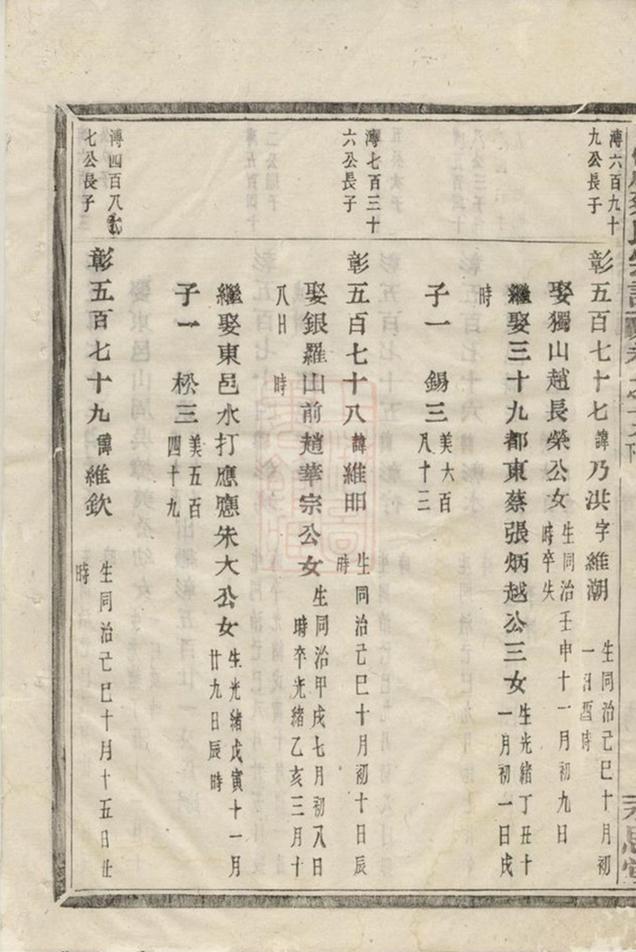 溥六百九十
九公長子
彰五百七十七諱乃洪字維潮生同治己巳十月初
一日酉時
娶獨山趙長榮公女生同治壬申十一月初九日
時卒失
繼娶三十九都東蔡張炳越公三女生光緒丁丑十
一月初一日戌
時
子一 錫三美六百
八十三
溥七百三十
六公長子
彰五百七十八諱維昍生同治己巳十月初十日辰
時
娶銀羅山前趙華宗公女生同治甲戌七月初八日
時卒光緒乙亥三月十
八日 時
繼娶東邑水打應應朱大公女生光緒戊寅十一月
廿九日辰時
子一 松三美五百
四十九
溥四百八
七公長子
彰五百七十九諱維欽生同治己巳十月十五日
時